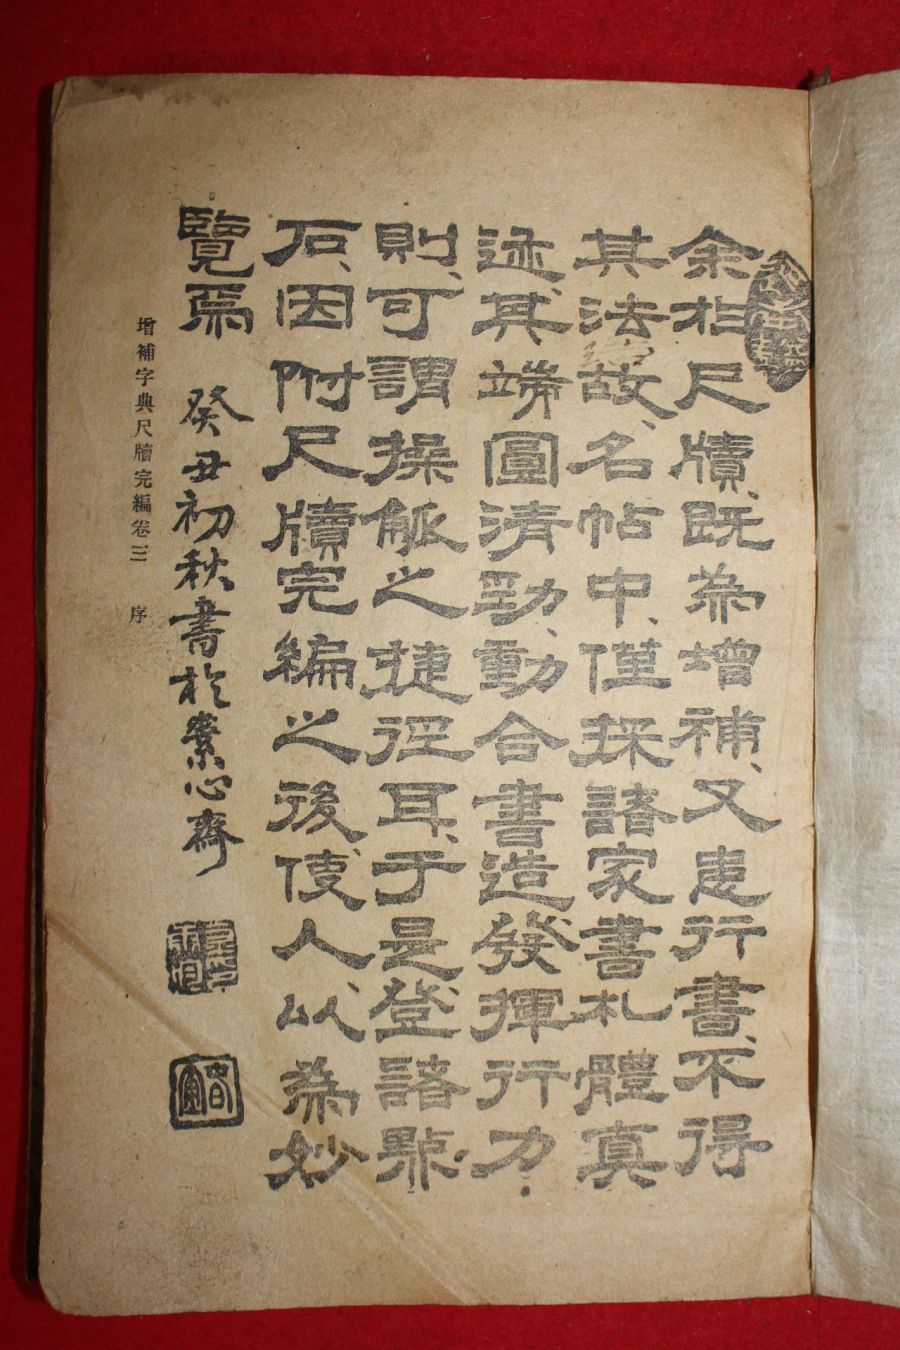 余於尺牘、既為增補、又患行書、不得
其法故、名帖中、僅採諸家書札體真
迹、其端圓清勁、動合書造發揮行力
則、可謂操觚之捷徑耳、于是登諸點
石、因附尺牘完編之後、使人、以為妙
覽焉 癸丑初秋書於素心齋
增補字典尺牘完編卷三 序